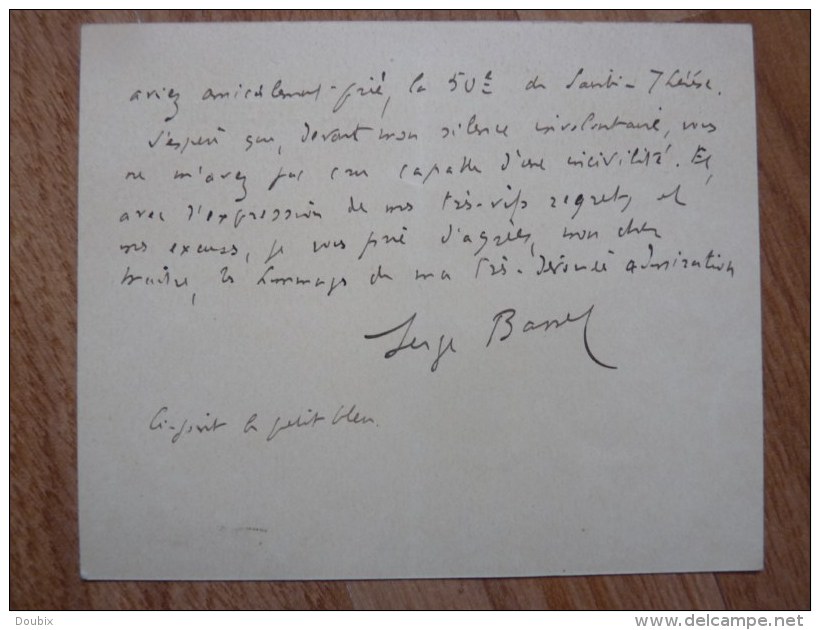 aviez amicalement prié, la 50e de Sainte-Thérèse.
J'espère que, devant mon silence involontaire, vous
ne m'avez pas cru capable d'une incivilité. Et,
avec l'expression de mes très-vifs regrets et
mes excuses, je vous prie d'agréer, mon cher
maître, les hommages de ma très-dévouée admiration
Serge Basset
Ci-joint le petit bleu.
Doubix
www.delcampe.net